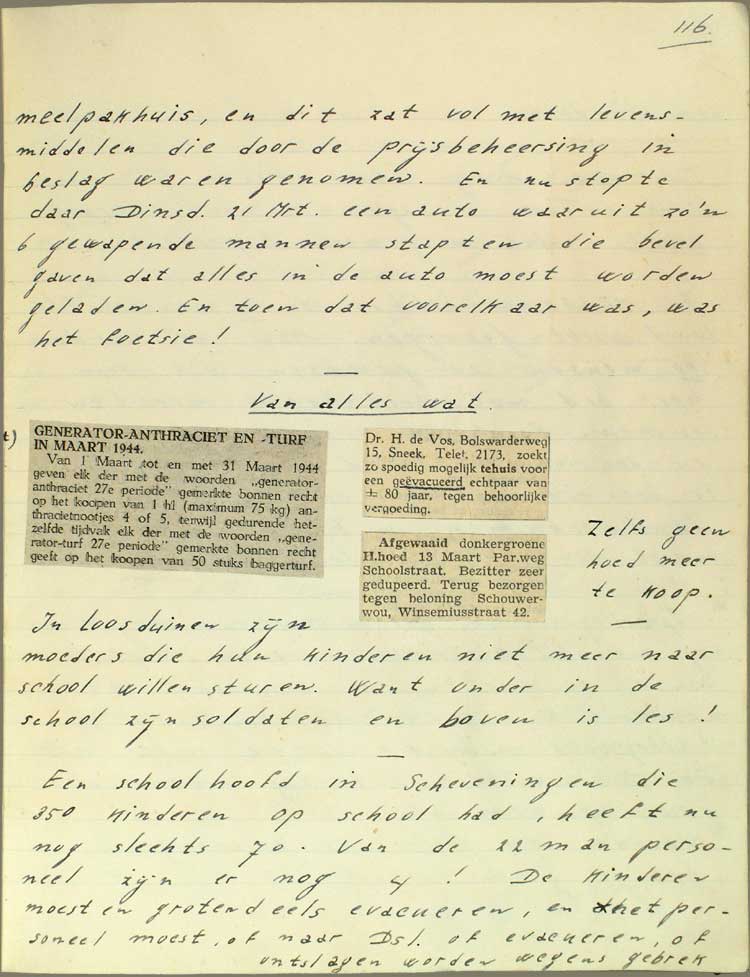 116.
meelpakhuis, en dit zat vol met levens-
middelen die door de prijsbeheersing in
beslag waren genomen. En nu stopte
daar Dinsd. 21 Mrt. een auto waaruit zo'n
6 gewapende mannen stapten die bevel
gaven dat alles in de auto moest worden
geladen. En toen dat voorelkaar was, was
het foetsie!
Van alles wat.
t)
GENERATOR-ANTHRACIET EN -TURF
IN MAART 1944.
Van 1 Maart tot en met 31 Maart 1944
geven elk der met de woorden „generator-
anthraciet 27e periode" gemerkte bonnen recht
op het koopen van 1 hl (maximum 75 kg) an-
thracietnootjes 4 of 5, terwijl gedurende het-
zelfde tijdvak elk der met de woorden „gene-
rator-turf 27e periode" gemerkte bonnen recht
geeft op het koopen van 50 stuks baggerturf.
Dr. H. de Vos, Bolswarderweg
15, Sneek, Telef. 2173, zoekt
zo spoedig mogelijk tehuis voor
een geëvacueerd echtpaar van
± 80 jaar, tegen behoorlijke
vergoeding.
Afgewaaid donkergroene
H.hoed 13 Maart Par.weg
Schoolstraat. Bezitter zeer
gedupeerd. Terug bezorgen
tegen beloning Schouwer-
wou, Winsemiusstraat 42.
Zelfs geen
hoed meer
te koop.
In Loosduinen zijn
moeders die hun kinderen niet meer naar
school willen sturen. Want onder in de
school zijn soldaten en boven is les!
Een schoolhoofd in Scheveningen die
350 kinderen op school had, heeft nu
nog slechts 70. Van de 22 man perso-
neel zijn er nog 4! De kinderen
moesten grotendeels evacueren, en het per-
soneel moest, of naar Dsl. of evacueren, of
ontslagen worden wegens gebrek